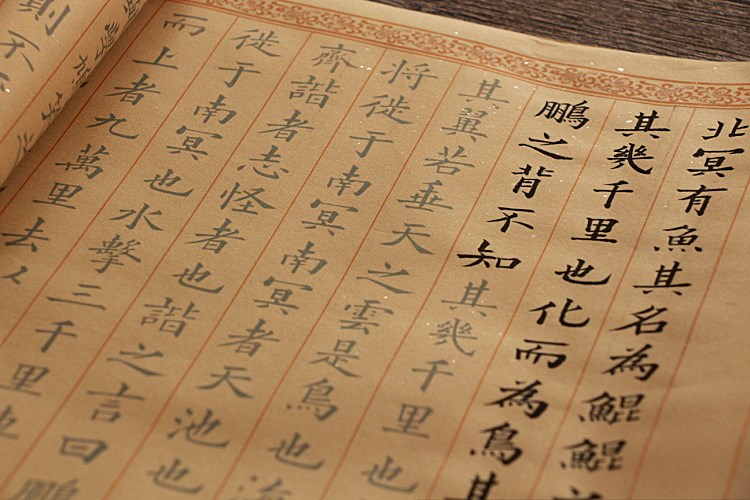 北冥有魚其名為鯤鯤
其幾千里也化而為鳥其
鵬之背不知其幾千里也
其翼若垂天之雲是鳥也海
将徙于南冥南冥者天池也
齊諧者志怪者也諧之言曰鵬
徙于南冥也水擊三千里
而上者九萬里去
則不